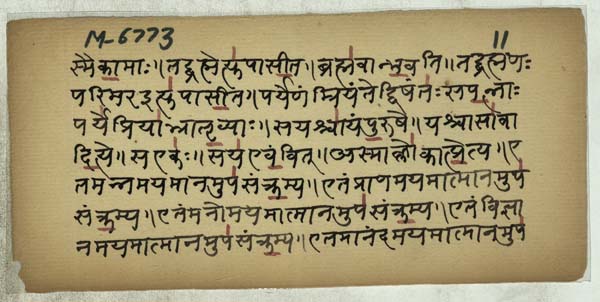 M-6773
११
स्मै कामाः ॥ तद्ब्रह्मेत्युपासीत ॥ ब्रह्मवान्भवति ॥ तद्ब्रह्मणः
परिमर इत्युपासीत ॥ पर्येणं म्रियंते द्विषंतः सपत्नाः
पर्ये प्रिया भ्रातृव्याः ॥ स यश्चायं पुरुषे ॥ यश्चासावा
दित्ये ॥ स एकः ॥ स य एवंवित् ॥ अस्माल्लोकात्प्रेत्य ॥ ए
तमन्नमयमात्मानमुपसंक्रम्य ॥ एतं प्राणमयमात्मानमुप
संक्रम्य ॥ एतं मनोमयमात्मानमुपसंक्रम्य ॥ एतं विज्ञा
नमयमात्मानमुपसंक्रम्य ॥ एतमानंदमयमात्मानमुप